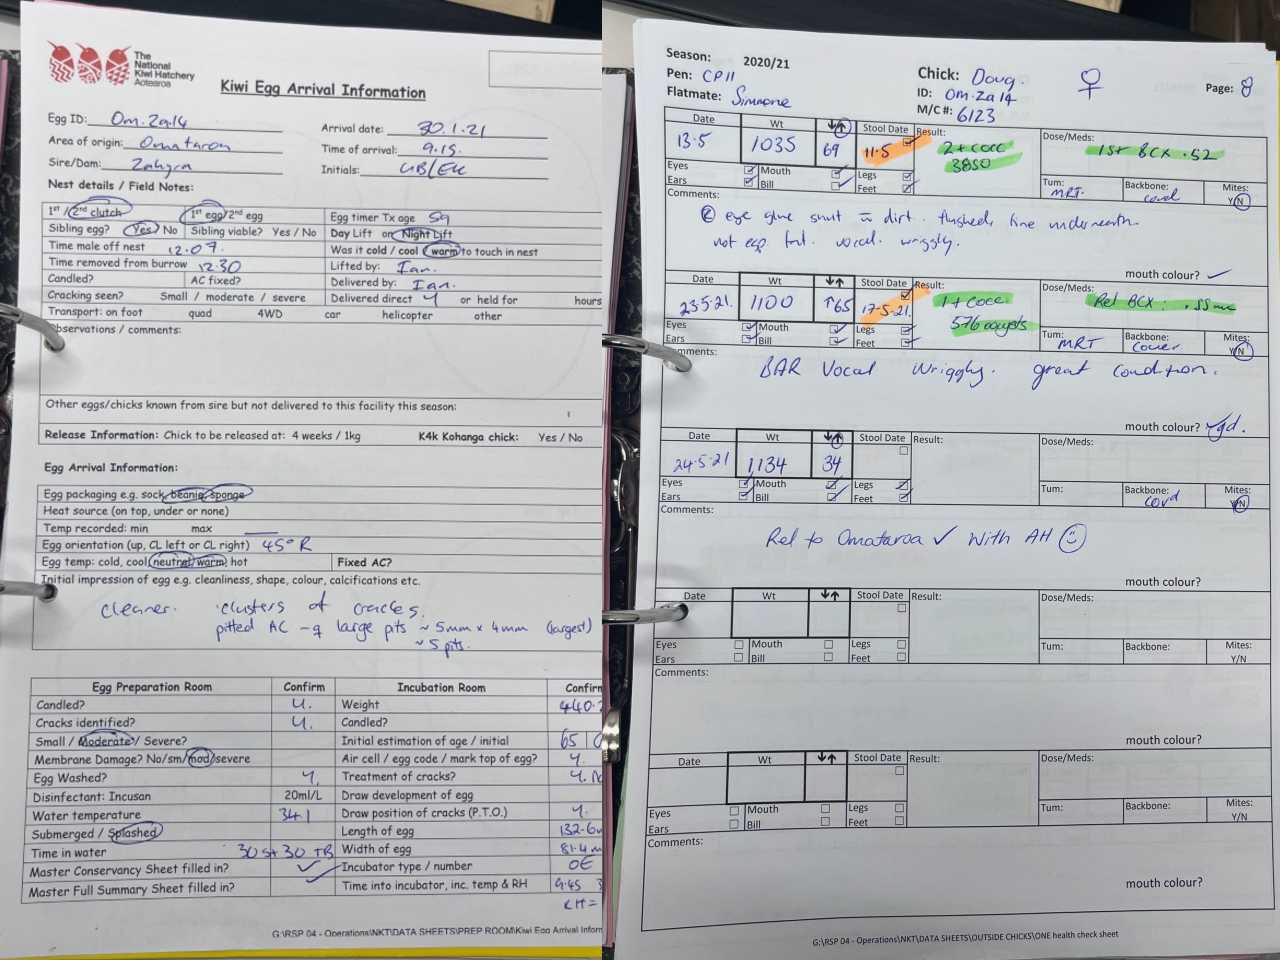 The
National
Kiwi Hatchery
Aotearoa
Kiwi Egg Arrival Information
Egg ID: Om.2a.14
Arrival date: 30.1.21
Area of origin: Omataroa
Time of arrival: 9.15
Sire/Dam: Zahyra
Initials: GB/EK
Nest details / Field Notes:
1st / 2nd clutch 1st egg/2nd egg Egg timer Tx age 59
Sibling egg? Yes / No Sibling viable? Yes / No Day Lift or Night Lift
Time male off nest 12.07. Was it cold / cool / warm to touch in nest
Time removed from burrow 12.30 Lifted by: Ian.
Candled? AC fixed? Delivered by: Ian.
Cracking seen? Small / moderate / severe Delivered direct Y or held for hours
Transport: on foot quad 4WD car helicopter other
Observations / comments:
Other eggs/chicks known from sire but not delivered to this facility this season:
Release Information: Chick to be released at: 4 weeks / 1kg K4k Kohanga chick: Yes / No
Egg Arrival Information:
Egg packaging e.g. sock, beanie, sponge
Heat source (on top, under or none)
Temp recorded: min max
Egg orientation (up, CL left or CL right) 45° R
Egg temp: cold, cool, neutral, warm, hot Fixed AC?
Initial impression of egg e.g. cleanliness, shape, colour, calcifications etc.
cleaner. clusters of cracks.
pitted AC - 9 large pits ~ 5mm x 4mm (largest)
~ 5 pits.
Egg Preparation Room Confirm Incubation Room Confirm
Candled? Y. Weight 440.
Cracks identified? Y. Candled?
Small / Moderate / Severe? Initial estimation of age / initial 65
Membrane Damage? No/sm/mod/severe Air cell / egg code / mark top of egg? Y.
Egg Washed? Y. Treatment of cracks? Y.
Disinfectant: Incusan 20ml/L Draw development of egg
Water temperature 34.1 Draw position of cracks (P.T.O.) Y.
Submerged / Splashed Length of egg 132.6
Time in water 30s + 30 TB Width of egg 81.4
Master Conservancy Sheet filled in? ✓ Incubator type / number OE
Master Full Summary Sheet filled in? ✓ Time into incubator, inc. temp & RH 9.45
RH =
G:\RSP 04 - Operations\NKT\DATA SHEETS\PREP ROOM\Kiwi Egg Arrival Inform
Season: 2020/21
Pen: CP11
Flatmate: Simmone
Chick: Doug. ♀
ID: Om.2a14
M/C#: 6123
Page: 8
Date Wt ↓↑ Stool Date Result: Dose/Meds:
13.5 1035 69 11.5 2+ cocc 3850 1st BCX .52
Eyes Mouth Legs Tum: MRT. Backbone: covd Mites:
Ears Bill Feet Y/N
Comments:
® eye glue shut c̄ dirt. flushed, fine underneath.
vocal. wriggly.
mouth colour? ✓
Date Wt ↓↑ Stool Date Result: Dose/Meds:
23.5.21. 1100 ↑65 17.5.21. 1+ cocc 576 oocysts Rel BCX: .55
Eyes Mouth Legs Tum: MRT Backbone: cover Mites:
Ears Bill Feet Y/N
Comments:
BAR Vocal Wriggly. great condition.
mouth colour? ✓gd.
Date Wt ↓↑ Stool Date Result: Dose/Meds:
24.5.21 1134 34
Eyes Mouth Legs Tum: Backbone: covd Mites:
Ears Bill Feet Y/N
Comments:
Rel to Omataroa ✓ With AH ☺
mouth colour?
Date Wt ↓↑ Stool Date Result: Dose/Meds:
Eyes Mouth Legs Tum: Backbone: Mites:
Ears Bill Feet Y/N
Comments:
mouth colour?
Date Wt ↓↑ Stool Date Result: Dose/Meds:
Eyes Mouth Legs Tum: Backbone: Mites:
Ears Bill Feet Y/N
Comments:
mouth colour?
G:\RSP 04 - Operations\NKT\DATA SHEETS\OUTSIDE CHICKS\ONE health check sheet